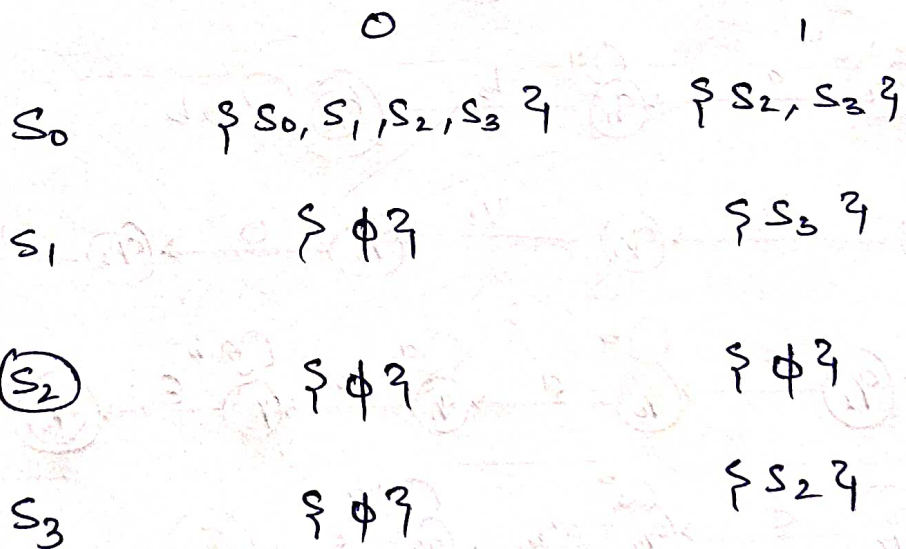 0 1
S0 { S0, S1, S2, S3 } { S2, S3 }
S1 { ϕ } { S3 }
S2 { ϕ } { ϕ }
S3 { ϕ } { S2 }